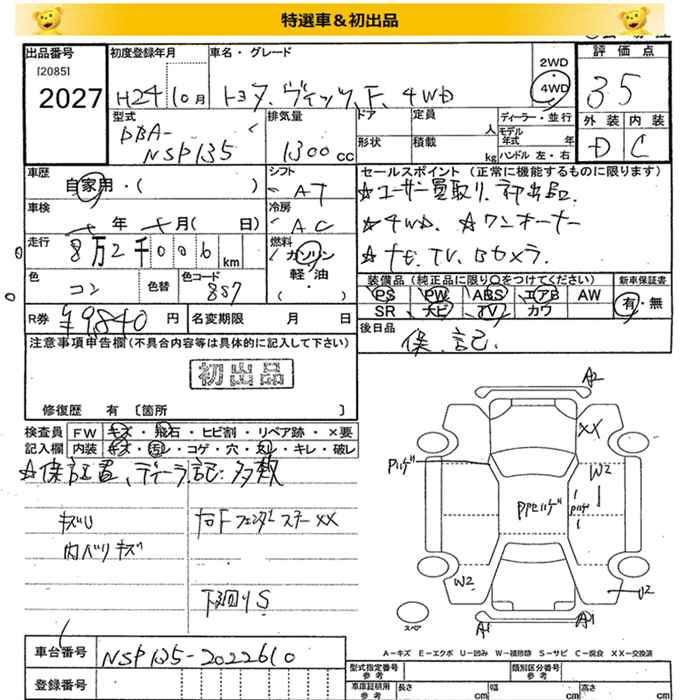 特選車＆初出品
出品番号
[2085]
2027
初度登録年月
H24 10月
車名・グレード
トヨタ、ヴィッツ、F、4WD
2WD
4WD
評価点
35
外装 内装
D C
型式
DBA-
NSP135
排気量
1300cc
ドア
定員
人
形状
積載
kg
ディーラー・並行
モデル年式 年
ハンドル 左・右
車歴
自家用・( )
シフト
AT
セールスポイント (正常に機能するものに限ります)
☆ユーザー買取り、初出品
☆4WD、☆ワンオーナー
☆ナビ、TV、Bカメラ
車検
年 月( 日)
冷房
AC
走行
8万2千006km
燃料
ガソリン
軽・油
( ・ )
色
コン
色替
色コード
887
装備品 (純正品に限り○をつけてください)
PS PW ABS エアB AW
SR ナビ TV カワ
新車保証書
有・無
R券
¥9,840円
名変期限 月 日
後日品
保、記
注意事項申告欄 (不具合内容等は具体的に記入して下さい)
初出品
修復歴 有 [箇所 ]
検査員
記入欄
FW キズ・飛石・ヒビ割・リペア跡・×要
内装 キズ・汚レ・コゲ・穴・スレ・キレ・破レ
☆保証書、ディーラー記 多数
キズU
内ハリキズ
右Fフェンダーステー XX
下廻りS
A2
XX
Pハゲ
W2
PPセハゲ
Pハゲ
W2
U2
A1
A1
スペア
A－キズ E－エクボ U－凹み W－補修跡 S－サビ C－腐食 XX－交換済
車台番号
NSP135-2022610
登録番号
型式指定番号
参考
類別区分番号
参考
車庫証明用
参考
長さ cm
幅 cm
高さ cm